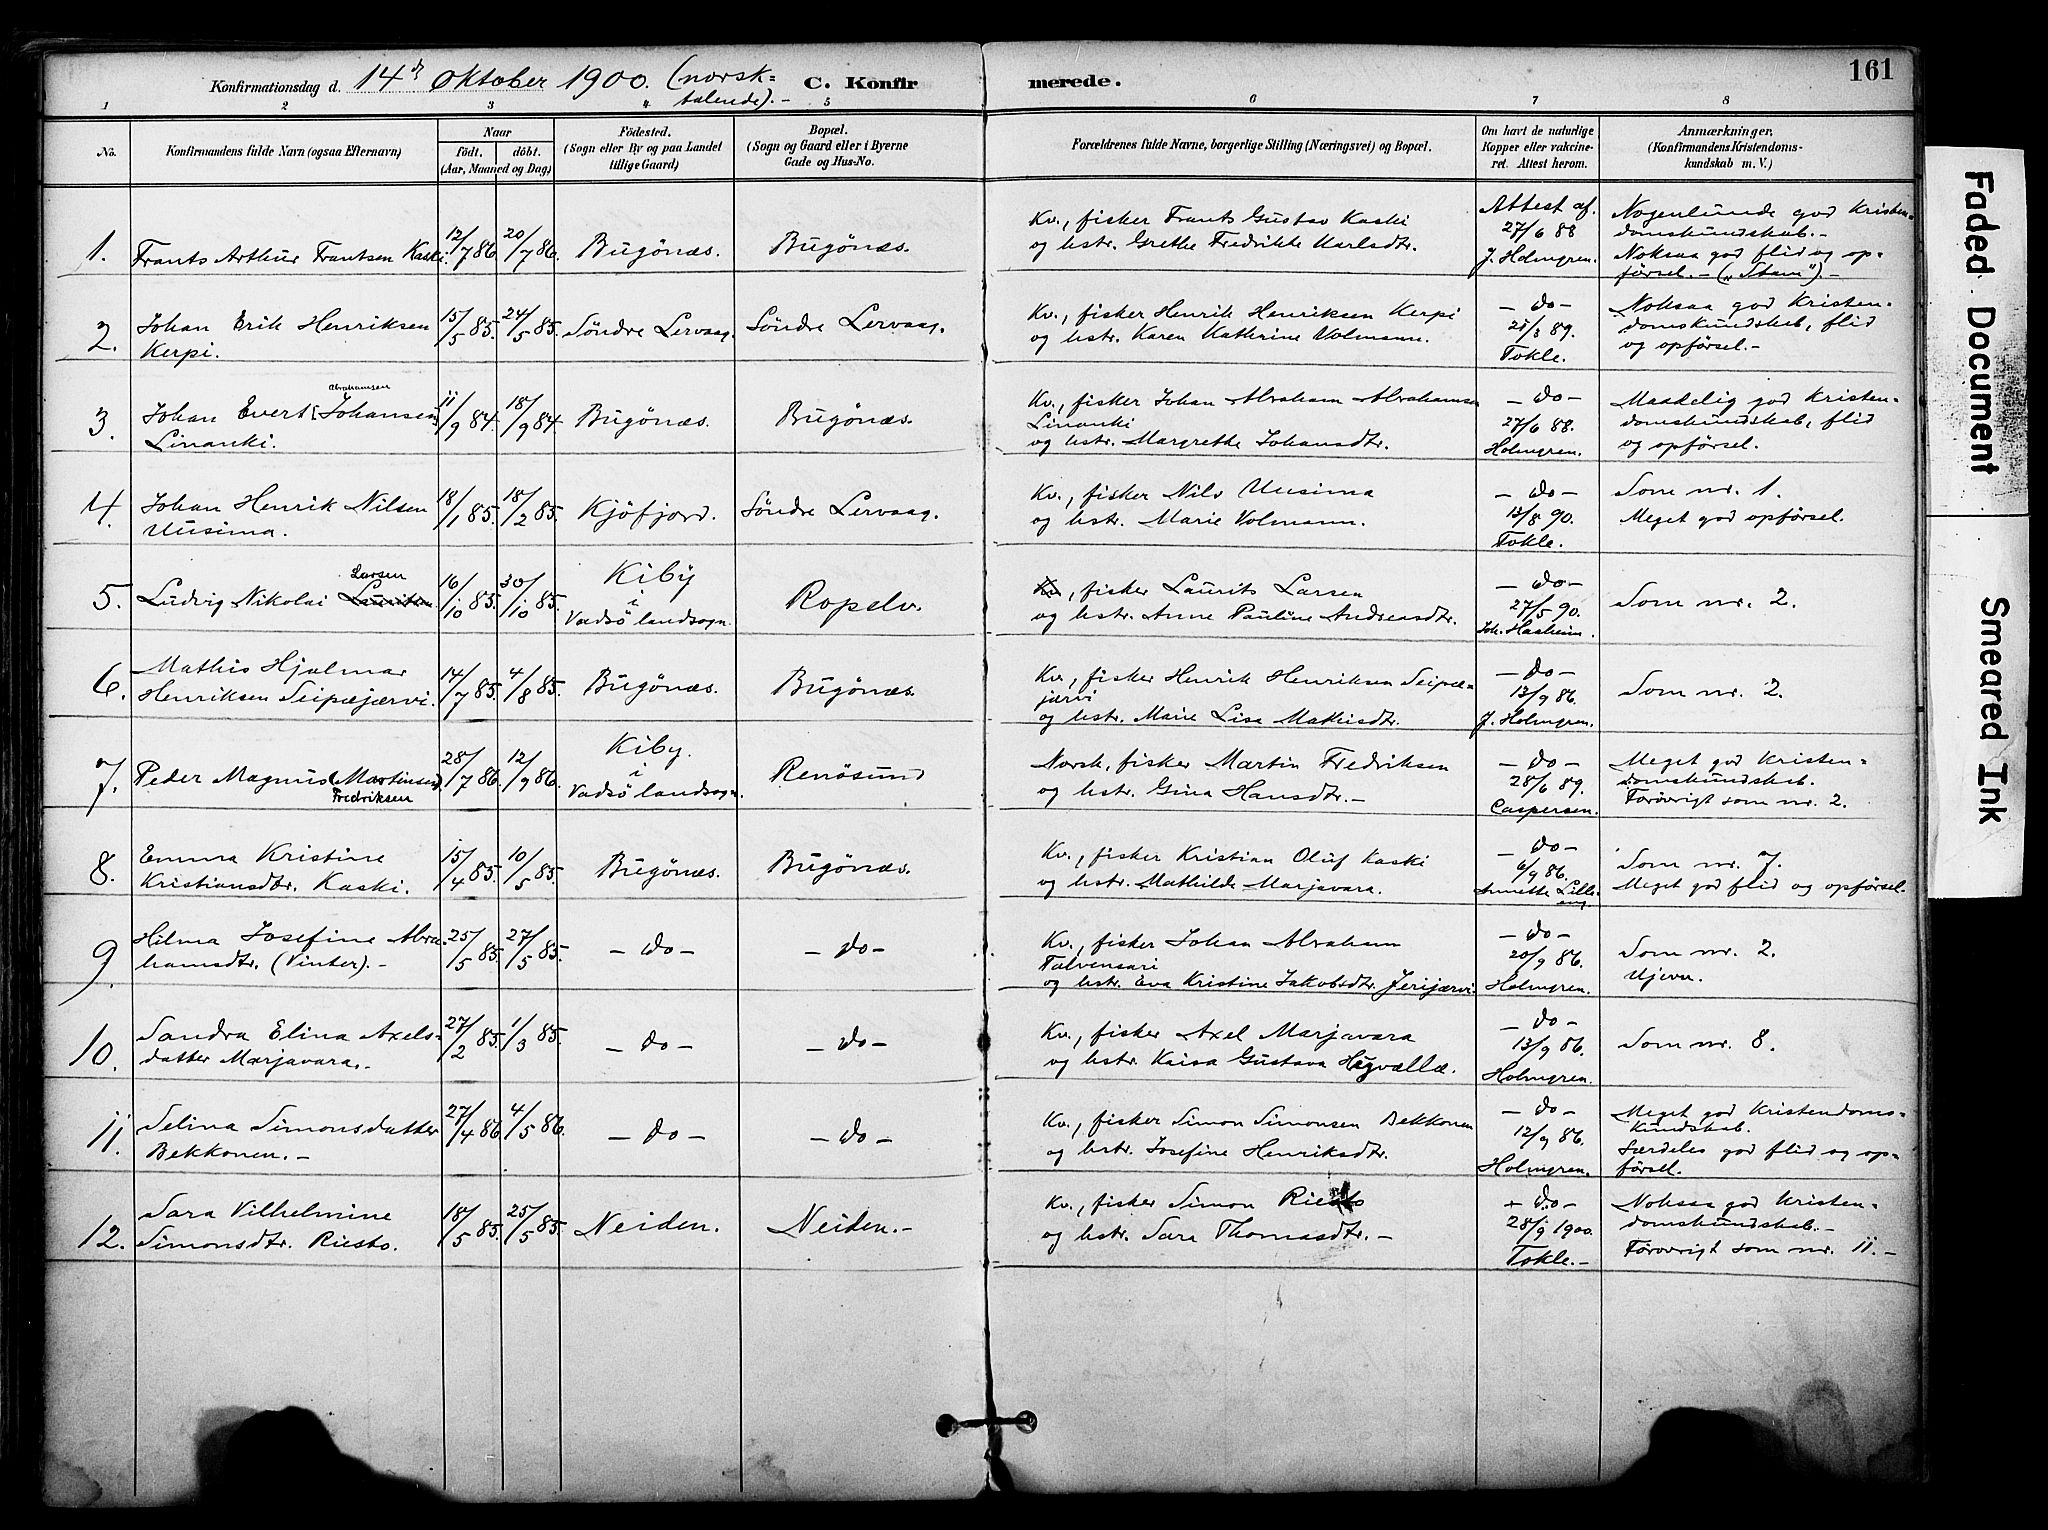 161
Konfirmationsdag d. 14de Oktober 1900. (norsk-
talende).-
C. Konfirmerede.
1 2 3 4 5 6 7 8
No.
Konfirmandens fulde Navn (ogsaa Efternavn)
Naar
født. døbt.
(Aar, Maaned og Dag)
Fødested.
(Sogn eller By og paa Landet
tillige Gaard)
Bopæl.
(Sogn og Gaard eller i Byerne
Gade og Hus-No.
Forældrenes fulde Navne, borgerlige Stilling (Næringsvei) og Bopæl.
Om havt de naturlige
Kopper eller vakcine-
ret. Attest herom.
Anmærkninger.
(Konfirmandens Kristendoms-
kundskab m. V.)
1. Frants Arthur Frantsen Kaski. 12/7 86. 20/7 86. Bugönæs. Bugönæs.
Kv., fisker Frants Gustav Kaski
og hstr. Grethe Fredrikke Karlsdtr.
Attest af.
27/6 88
J. Holmgren.
Nogenlunde god Kristen-
domskundskab.-
Noksaa god flid og op-
førsel.- („Stam").-
2. Johan Erik Henriksen
Kerpi.
15/5 85. 24/5 85. Söndre Lervaag. Söndre Lervaag.
Kv., fisker Henrik Henriksen Kerpi
og hstr. Karen Kathrine Volmann.
- do -
89.
Tokle.
Noksaa god Kristen-
domskundskab, flid
og opførsel.-
3. Johan Evert [Johansen]
Abrahamsen
Linanki.
11/9 84. 18/9 84. Bugönæs. Bugönæs.
Kv., fisker Johan Abraham Abrahamsen
Linanki
og hstr. Margrethe Johansdtr.
- do -
27/6 88.
Holmgren.
Maadelig god Kristen-
domskundskab, flid
og opførsel.
4. Johan Henrik Nilsen
Uusima.
18/1 85. 18/2 85. Kjöfjord. Söndre Lervaag.
Kv., fisker Nils Uusima
og hstr. Marie Volmann.
- do -
13/8 90.
Tokle.
Som nr. 1.
Meget god opförsel.
5. Ludvig Nikolai Larsen
16/10 85. 30/10 85. Kiby
i
Vadsö landsogn.
Ropelv.
Kv, fisker Laurits Larsen
og hstr. Anne Pauline Andreasdtr.
- do -
27/5 90.
Joh. Haaheim.
Som nr. 2.
6. Mathis Hjalmar
Henriksen Seipæjærvi.
14/7 85. 4/8 85. Bugönæs. Bugönæs.
Kv., fisker Henrik Henriksen Seipæ-
jærvi
og hstr. Marie Lisa Mathisdtr.
- do -
13/9 86.
J. Holmgren.
Som nr. 2.
7. Peder Magnus (Martinsen)
Fredriksen
28/7 86. 12/9 86. Kiby.
i
Vadsö landsogn.
Renösund
Norsk, fisker Martin Fredriksen
og hstr. Gina Hansdtr.-
- do -
28/6 89.
Caspersen.
Meget god Kristen-
domskundskab.
Forøvrigt som nr. 2.
8. Emma Kristine
Kristiansdtr. Kaski.
15/4 85. 10/5 85. Bugönæs. Bugönæs.
Kv., fisker Kristian Oluf Kaski
og hstr. Mathilde Marjavara.
- do -
6/9 86.
Annette Lille-
eng.
Som nr. 7.
Meget god flid og opførsel.
9. Hilma Josefine Abra-
hamsdtr. (Vinter).-
25/5 85. 27/5 85. - do - - do -
Kv., fisker Johan Abraham
Talvensari
og hstr. Eva Kristine Jakobsdtr. Jerijærvi.
- do -
20/9 86.
Holmgren.
Som nr. 2.
Ujevn.
10. Sandra Elina Axels-
datter Marjavara.-
27/2 85. 1/3 85. - do - - do -
Kv., fisker Axel Marjavara
og hstr. Kaisa Gustava
- do -
13/9 86.
Holmgren.
Som nr. 8.
11. Selina Simonsdatter
Bekkonen.-
27/4 86. 4/5 86. - do - - do -
Kv., fisker Simon Simonsen Bekkonen
og hstr. Josefine Henriksdtr.
- do -
12/9 86.
Holmgren.
Meget god Kristendoms-
kundskab.
Særdeles god flid og op-
førsel.
12. Sara Vilhelmine
Simonsdtr. Riesto.
18/5 85. 25/5 85. Neiden. Neiden.-
Kv., fisker Simon Riesto
og hstr. Sara Thomasdtr.-
- do -
28/9 1900.
Tokle.-
Noksaa god Kristen-
domskundskab.-
Forøvrigt som nr. 11.-
Faded Document
Smeared Ink